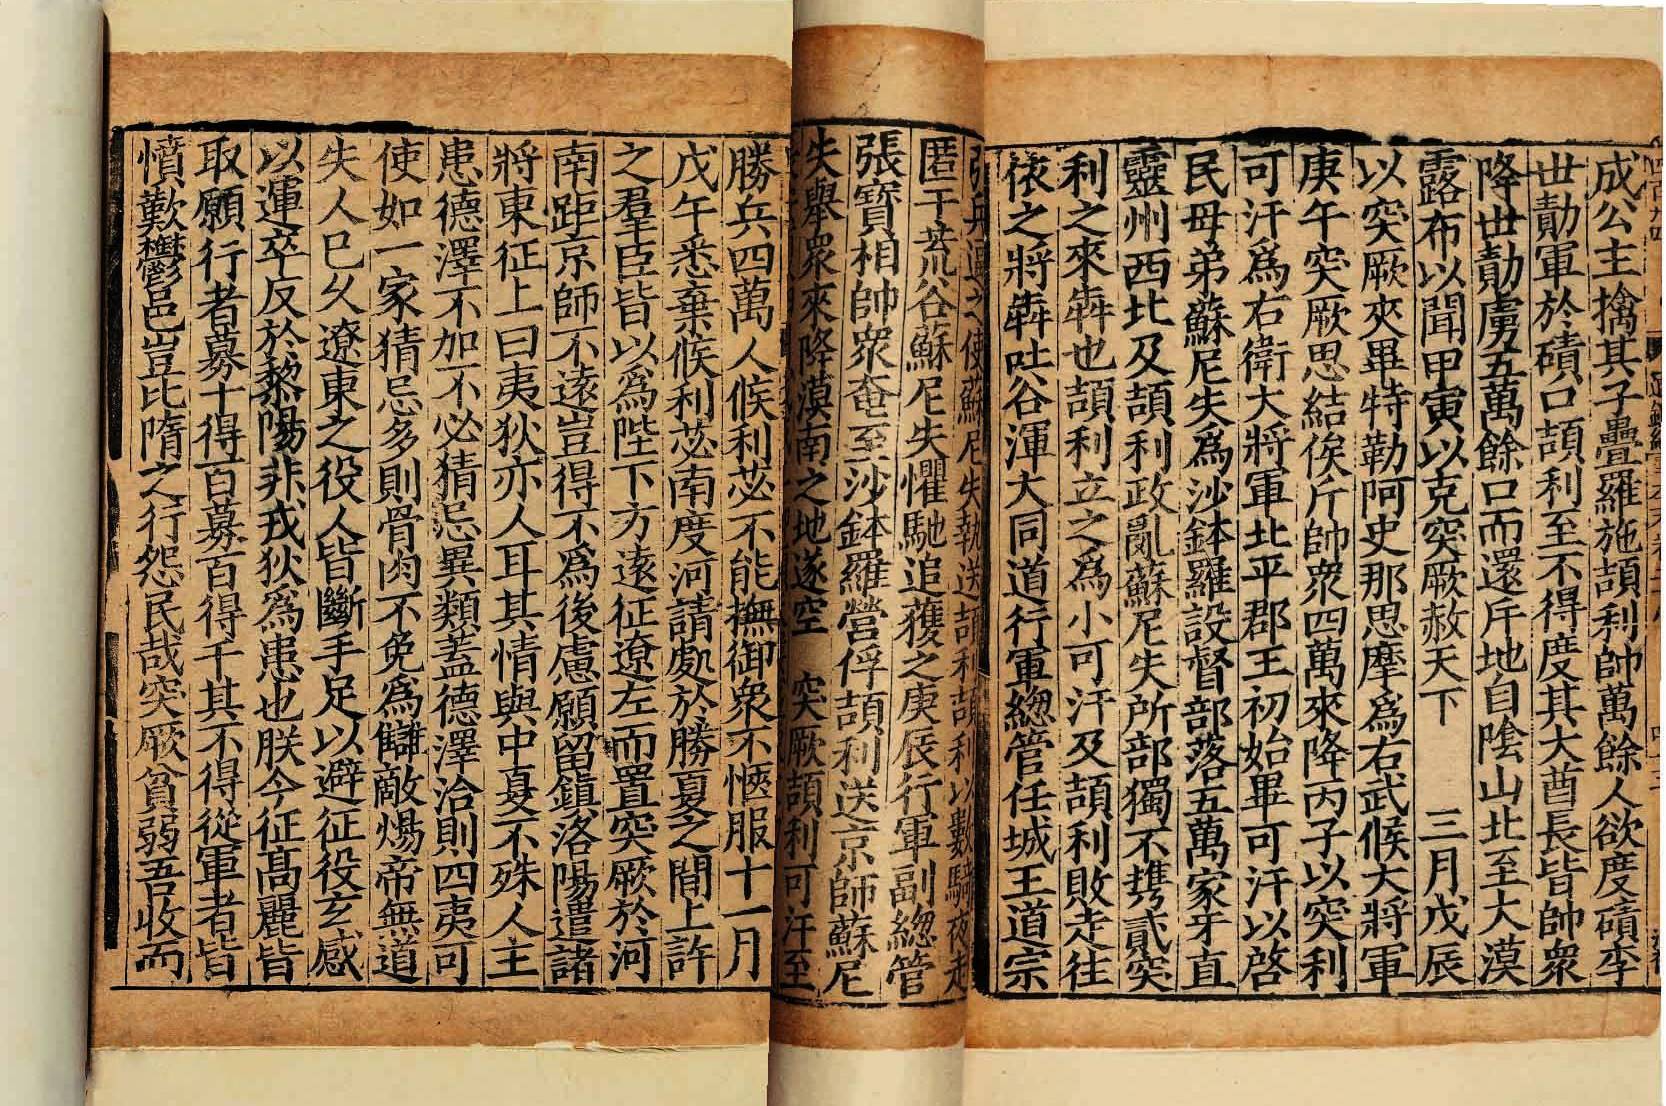 成公主擒其子疊羅施頡利帥萬餘人欲度磧李
世勣軍於磧口頡利至不得度其大酋長皆帥衆
降世勣虜五萬餘口而還斥地自隂山北至大漠
露布以聞甲寅以克突厥赦天下 三月戊辰
以突厥夾畢特勒阿史那思摩為右武候大將軍
庚午突厥思結俟斤帥衆四萬來降丙子以突利
可汗為右衛大將軍北平郡王初始畢可汗以啓
民母弟蘇尼失為沙鉢羅設督部落五萬家牙直
靈州西北及頡利政亂蘇尼失所部獨不携貳突
利之來犇也頡利立之為小可汗及頡利敗走往
依之將犇吐谷渾大同道行軍緫管任城王道宗
引兵逼之使蘇尼失執送頡利頡利以數騎夜走
匿于荒谷蘇尼失懼馳追獲之庚辰行軍副緫管
張寶相帥衆奄至沙鉢羅營俘頡利送京師蘇尼
失舉衆來降漠南之地遂空 突厥頡利可汗至
勝兵四萬人候利苾不能撫御衆不愜服十一月
戊午悉棄候利苾南度河請處於勝夏之間上許
之羣臣皆以為陛下方遠征遼左而置突厥於河
南距京師不遠豈得不為後慮願留鎮洛陽遣諸
將東征上曰夷狄亦人耳其情與中夏不殊人主
患德澤不加不必猜忌異類蓋德澤洽則四夷可
使如一家猜忌多則骨肉不免為讎敵煬帝無道
失人已久遼東之役人皆斷手足以避征役玄感
以運卒反於黎陽非戎狄為患也朕今征高麗皆
取願行者募十得百募百得千其不得從軍者皆
憤歎鬱邑豈比隋之行怨民哉突厥貧弱吾收而